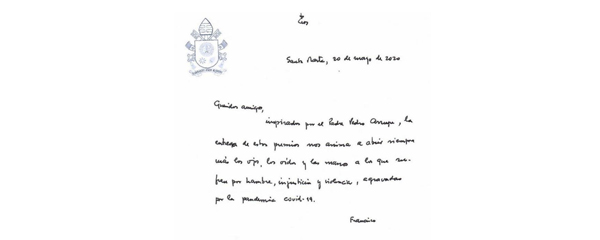 Santa Marta, 20 de mayo de 2020
Queridos amigos,
inspirados por el Padre Pedro Arrupe, la
entrega de estos premios nos anima a abrir siempre
más los ojos, los oídos y las manos a los que su-
fren por hambre, injusticia y violencia, agravadas
por la pandemia covid-19.
Francisco